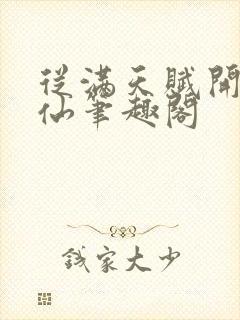 從滿天賦開
仙筆趣閣
錢家大少